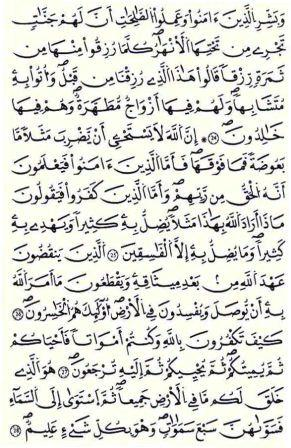 وَبَشِّرِ الَّذِينَ ءَامَنُواْ وَعَمِلُواْ الصَّٰلِحَٰتِ أَنَّ لَهُمْ جَنَّٰتٖ
تَجْرِے مِن تَحْتِهَا الْأَنْهَٰرُ كُلَّمَا رُزِقُواْ مِنْهَا مِن
ثَمَرَةٖ رِّزْقاٗ قَالُواْ هَٰذَا الَّذِے رُزِقْنَا مِن قَبْلُ وَأُتُواْ بِهِۦ
مُتَشَٰبِهاٗ وَلَهُمْ فِيهَا أَزْوَٰجٞ مُّطَهَّرَةٞ وَهُمْ فِيهَا
خَٰلِدُونَ 24 إِنَّ اللَّهَ لَا يَسْتَحْيِۦ أَنْ يَّضْرِبَ مَثَلاٗ مَّا
بَعُوضَةٗ فَمَا فَوْقَهَا فَأَمَّا الَّذِينَ ءَامَنُواْ فَيَعْلَمُونَ
أَنَّهُ الْحَقُّ مِن رَّبِّهِمْ وَأَمَّا الَّذِينَ كَفَرُواْ فَيَقُولُونَ
مَاذَا أَرَادَ اللَّهُ بِهَٰذَا مَثَلاٗ يُضِلُّ بِهِۦ كَثِيراٗ وَيَهْدِے بِهِۦ
كَثِيراٗ وَمَا يُضِلُّ بِهِۦ إِلَّا الْفَٰسِقِينَ 25 الَّذِينَ يَنقُضُونَ
عَهْدَ اللَّهِ مِنۢ بَعْدِ مِيثَٰقِهِۦ وَيَقْطَعُونَ مَا أَمَرَ اللَّهُ
بِهِۦ أَنْ يُّوصَلَ وَيُفْسِدُونَ فِے الْأَرْضِ أُوْلَٰٓئِكَ هُمُ الْخَٰسِرُونَ 26
كَيْفَ تَكْفُرُونَ بِاللَّهِ وَكُنتُمْ أَمْوَٰتاٗ فَأَحْيَٰكُمْ
ثُمَّ يُمِيتُكُمْ ثُمَّ يُحْيِيكُمْ ثُمَّ إِلَيْهِ تُرْجَعُونَ 27 هُوَ الَّذِے
خَلَقَ لَكُم مَّا فِے الْأَرْضِ جَمِيعاٗ ثُمَّ اسْتَوَىٰ إِلَى السَّمَآءِ
فَسَوَّىٰهُنَّ سَبْعَ سَمَٰوَٰتٖ وَهُوَ بِكُلِّ شَےْءٍ عَلِيمٞ 28